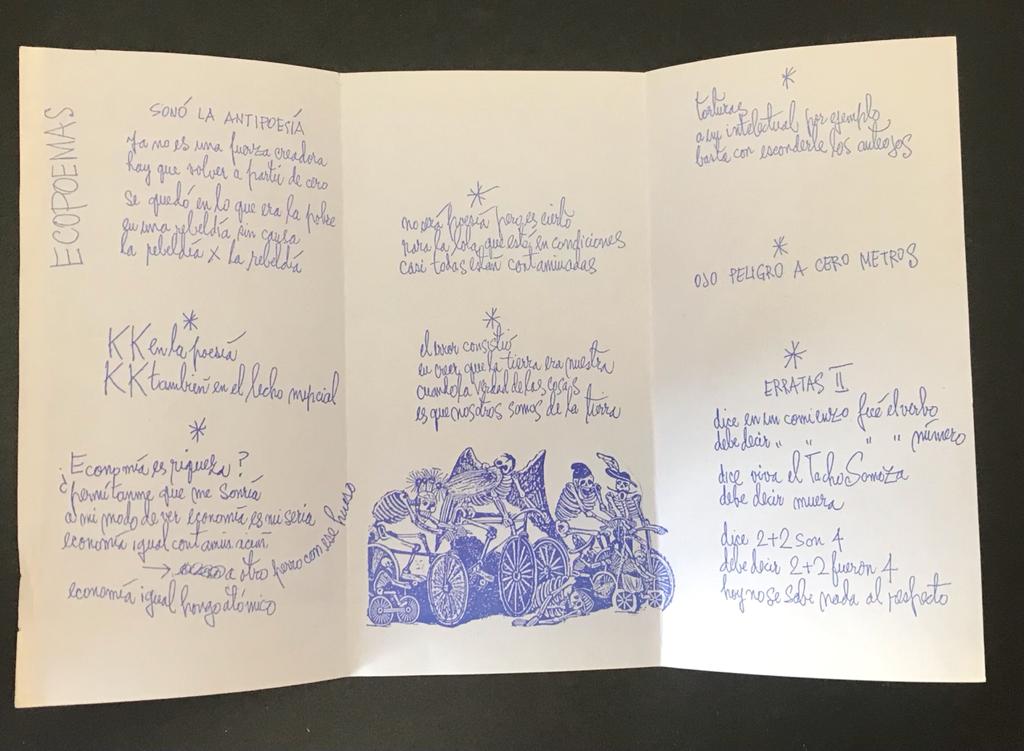 ECOPOEMAS
SONÓ LA ANTIPOESÍA
Ya no es una fuerza creadora
hay que volver a partir de cero
Se quedó en lo que era la pobre
en una rebeldía sin causa
la rebeldía x la rebeldía
*
KK en la poesía
KK también en el lecho nupcial
*
¿Economía es riqueza?
permítanme que me sonría
a mi modo de ver economía es miseria
economía igual contaminación
→ a otro perro con ese hueso
economía igual hongo atómico
*
no será poesía pero es cierto
rara la lola que está en condiciones
casi todas están contaminadas
*
el error consistió
en creer que la tierra era nuestra
cuando la verdad de las cosas
es que nosotros somos de la tierra
*
torturas
a un intelectual por ejemplo
basta con esconderle los anteojos
*
OJO PELIGRO A CERO METROS
*
ERRATAS II
dice en un comienzo fué el verbo
debe decir " " " " número
dice viva el Tacho Somoza
debe decir muera
dice 2+2 son 4
debe decir 2+2 fueron 4
hoy no se sabe nada al respecto